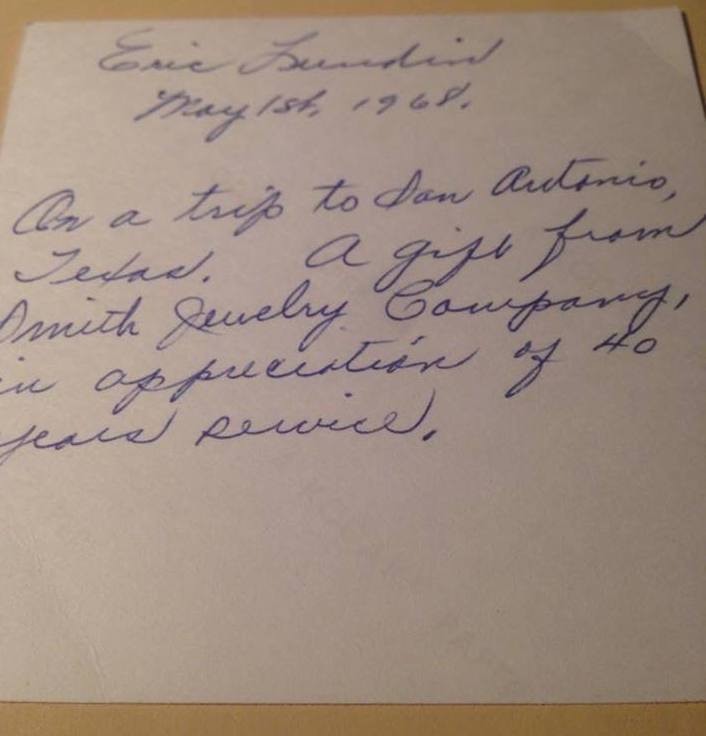 Eric Lundin
May 1st, 1968.
On a trip to San Antonio,
Texas. A gift from
Smith Jewelry Company,
in appreciation of 40
years service.